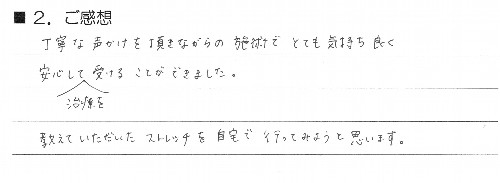 ■ 2. ご感想
丁寧な声かけを頂きながらの施術で とても気持ち良く
安心して受けることができました。
治療を
教えていただいた ストレッチを 自宅で 行ってみようと思います。